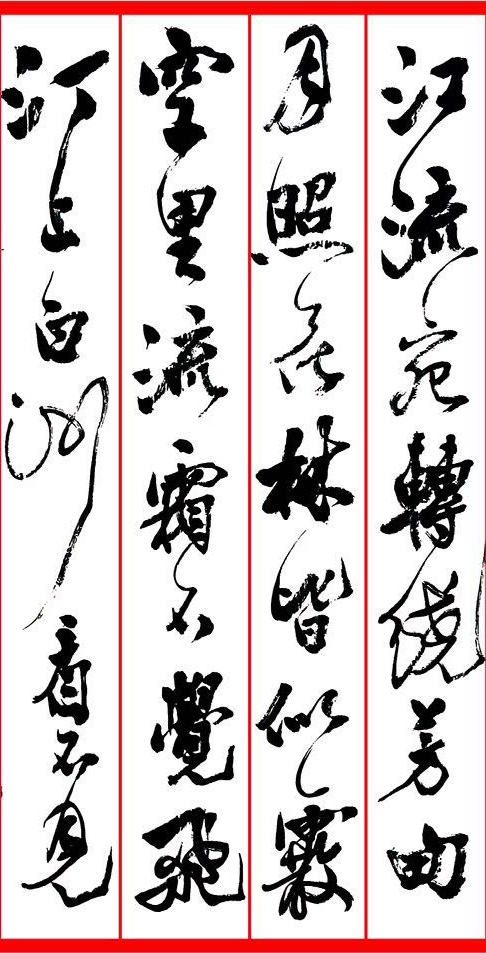 江流宛轉繞芳甸
月照花林皆似霰
空里流霜不覺飛
汀上白沙看不見